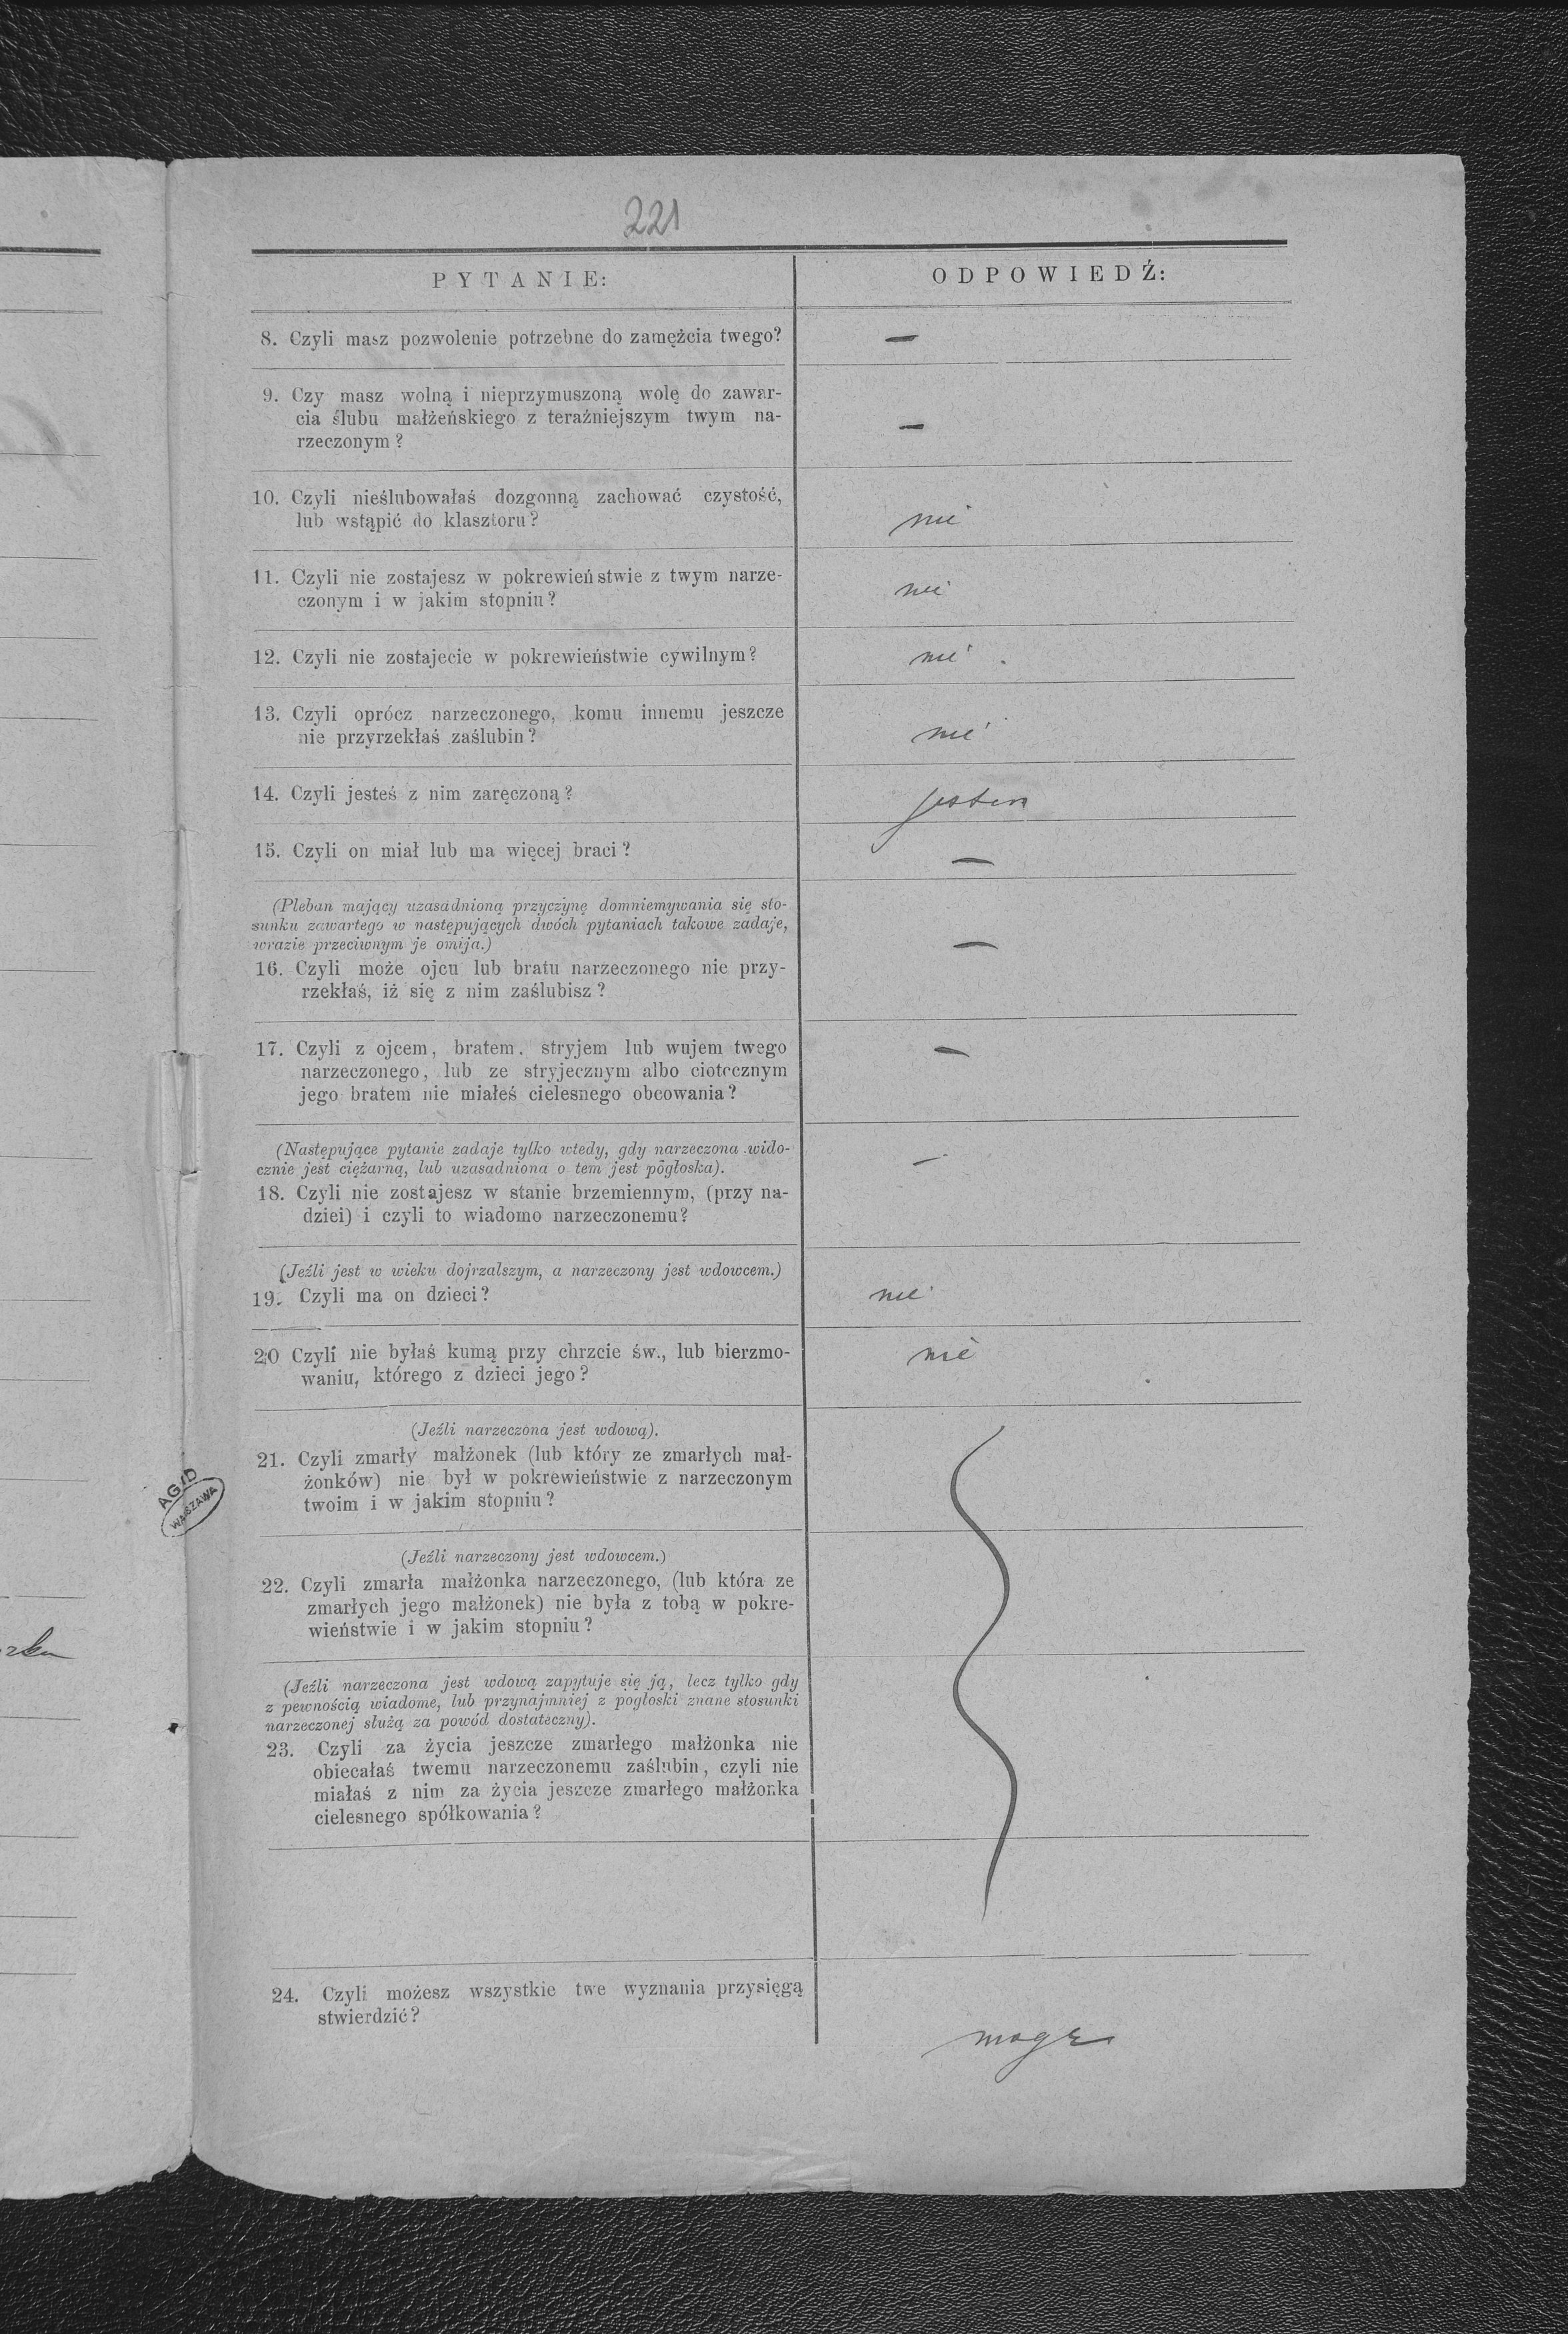 221
PYTANIE:
ODPOWIEDŹ:
8. Czyli masz pozwolenie potrzebne do zamężcia twego?
—
9. Czy masz wolną i nieprzymuszoną wolę do zawar-
cia ślubu małżeńskiego z teraźniejszym twym na-
rzeczonym?
—
10. Czyli nieślubowałaś dozgonną zachować czystość,
lub wstąpić do klasztoru?
nie
11. Czyli nie zostajesz w pokrewieństwie z twym narze-
czonym i w jakim stopniu?
nie
12. Czyli nie zostajecie w pokrewieństwie cywilnym?
nie .
13. Czyli oprócz narzeczonego, komu innemu jeszcze
nie przyrzekłaś zaślubin?
nie
14. Czyli jesteś z nim zaręczoną?
jestem
15. Czyli on miał lub ma więcej braci?
—
(Pleban mający uzasadnioną przyczynę domniemywania się sto-
sunku zawartego w następujących dwóch pytaniach takowe zadaje,
wrazie przeciwnym je omija.)
—
16. Czyli może ojcu lub bratu narzeczonego nie przy-
rzekłaś, iż się z nim zaślubisz?
17. Czyli z ojcem, bratem, stryjem lub wujem twego
narzeczonego, lub ze stryjecznym albo ciotecznym
jego bratem nie miałeś cielesnego obcowania?
—
(Następujące pytanie zadaje tylko wtedy, gdy narzeczona wido-
cznie jest ciężarną, lub uzasadniona o tem jest pogłoska).
—
18. Czyli nie zostajesz w stanie brzemiennym, (przy na-
dziei) i czyli to wiadomo narzeczonemu?
(Jeźli jest w wieku dojrzalszym, a narzeczony jest wdowcem.)
19. Czyli ma on dzieci?
nie
20 Czyli nie byłaś kumą przy chrzcie św., lub bierzmo-
waniu, którego z dzieci jego?
nie
(Jeźli narzeczona jest wdową).
21. Czyli zmarły małżonek (lub który ze zmarłych mał-
żonków) nie był w pokrewieństwie z narzeczonym
twoim i w jakim stopniu?
(Jeźli narzeczony jest wdowcem.)
22. Czyli zmarła małżonka narzeczonego, (lub która ze
zmarłych jego małżonek) nie była z tobą w pokre-
wieństwie i w jakim stopniu?
(Jeźli narzeczona jest wdową zapytuje się ją, lecz tylko gdy
z pewnością wiadome, lub przynajmniej z pogłoski znane stosunki
narzeczonej służą za powód dostateczny).
23. Czyli za życia jeszcze zmarłego małżonka nie
obiecałaś twemu narzeczonemu zaślubin, czyli nie
miałaś z nim za życia jeszcze zmarłego małżonka
cielesnego spółkowania?
24. Czyli możesz wszystkie twe wyznania przysięgą
stwierdzić?
mogę
AGAD
WARSZAWA